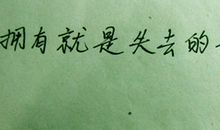 拥有就是失去的